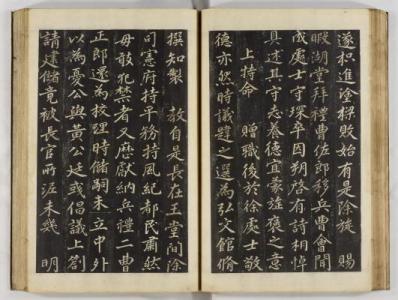 遂枳進塗檪敗始有是除機 賜
暇湖堂拜禮曹佐郎移兵曹會聞
成處士守琛卒因朔啓有詩相悼
具述其守志養德宜蒙旌褒之意
上特命 贈職後於徐處士敬
德亦然時議韙之選爲弘文館脩
撰知製 敎自是長在玉堂間除
司憲府持平務持風紀都民肅然
毋敢犯禁者又歷獻納兵禮二曹
正郎還爲校理時儲嗣未立中外
以爲憂公與黃公廷彧倡議上箚
請建儲竟被長官所沮未幾 明